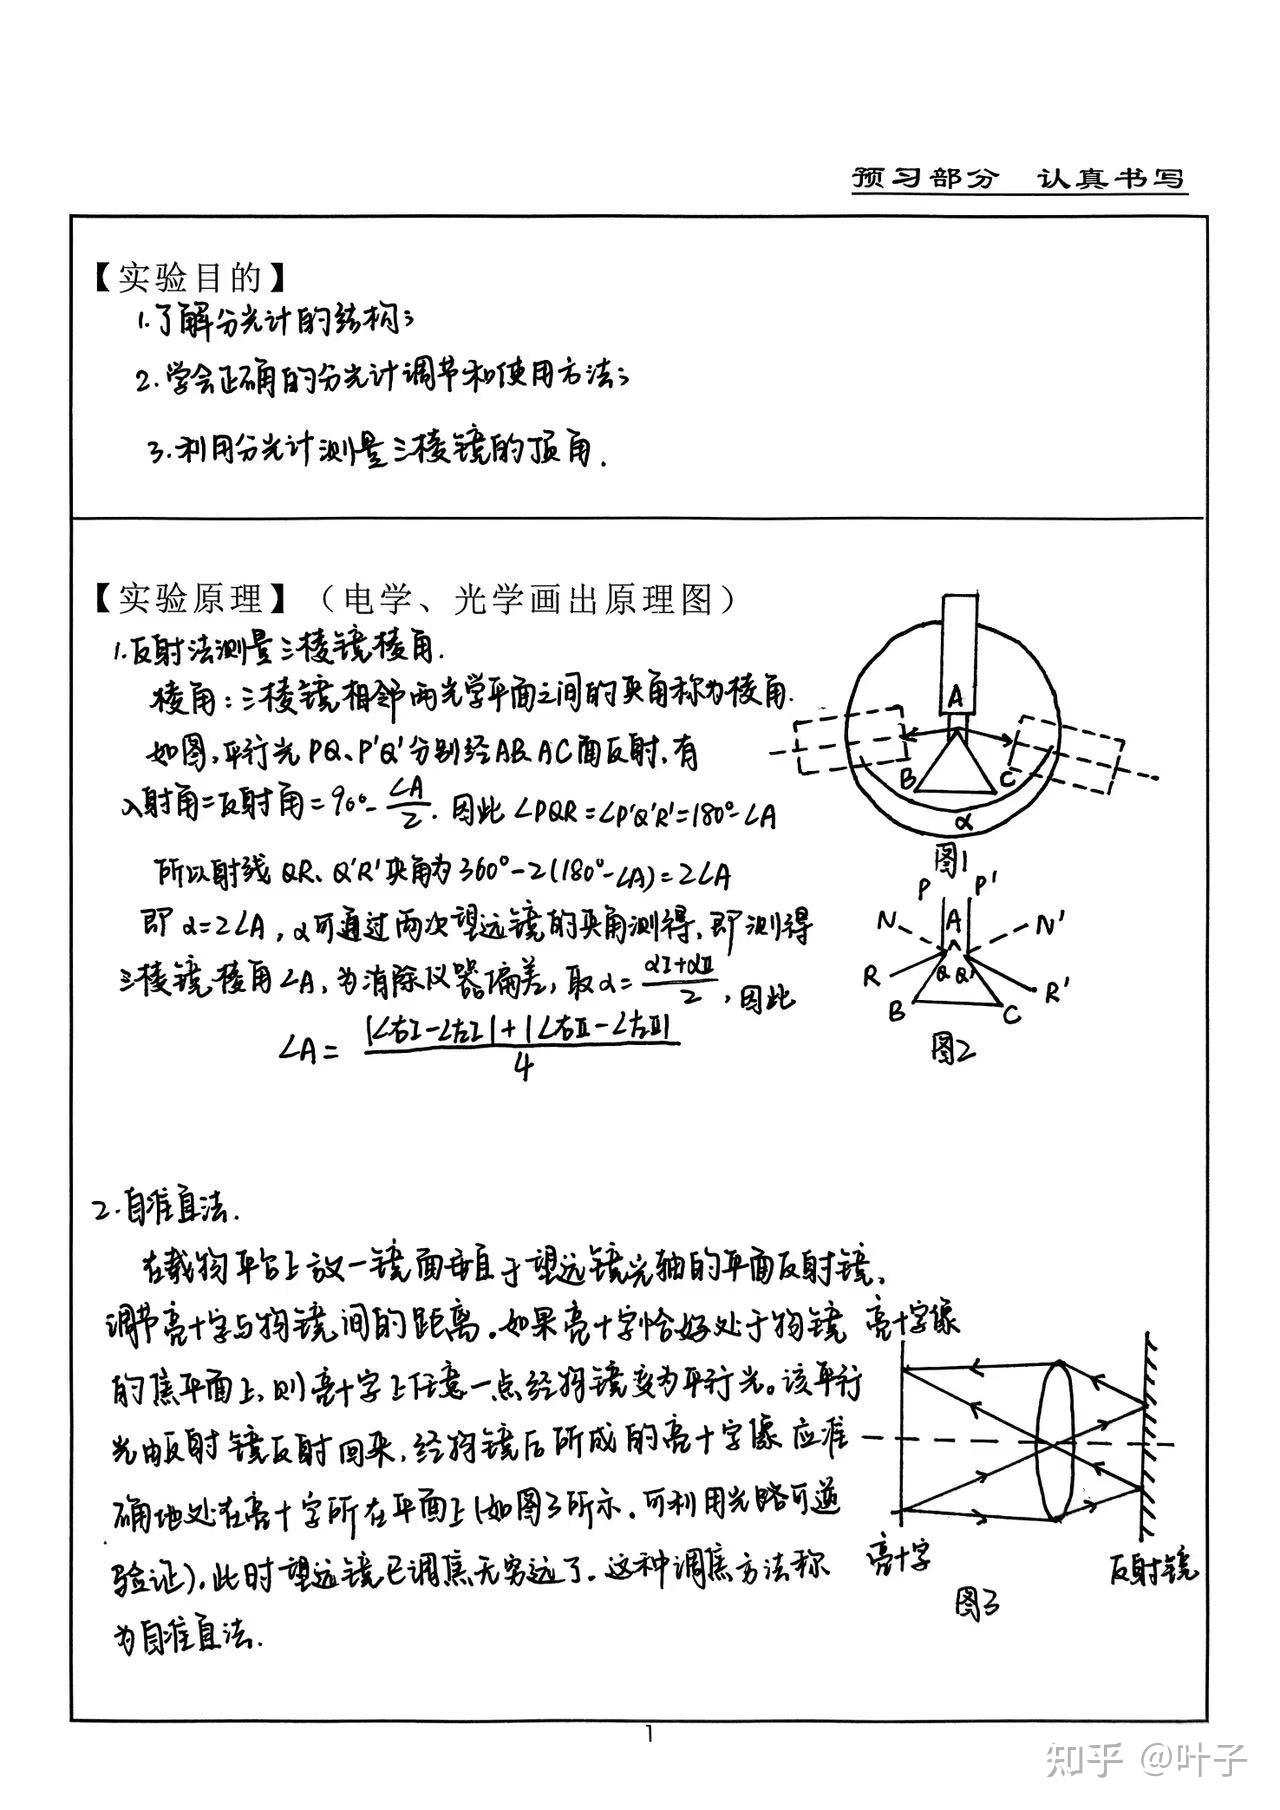 预习部分 认真书写
【实验目的】
1.了解分光计的结构；
2.学会正确的分光计调节和使用方法；
3.利用分光计测量三棱镜的顶角.
【实验原理】（电学、光学画出原理图）
1.反射法测量三棱镜棱角.
棱角:三棱镜相邻两光学平面之间的夹角称为棱角.
如图,平行光PQ、P'Q'分别经AB、AC面反射,有
入射角=反射角=90°-∠A/2.因此∠PQR=∠P'Q'R'=180°-∠A
所以射线QR、Q'R'夹角为360°-2(180°-∠A)=2∠A
即α=2∠A,α可通过两次望远镜的夹角测得,即测得
三棱镜棱角∠A,为消除仪器偏差,取α=(αⅠ+αⅡ)/2,因此
∠A=(|∠右Ⅰ-∠左Ⅰ|+|∠右Ⅱ-∠左Ⅱ|)/4
A
B
C
α
图1
P P'
N A N'
R Q Q' R'
B C
图2
2.自准直法.
在载物平台上放一镜面垂直于望远镜光轴的平面反射镜,
调节亮十字与物镜间的距离.如果亮十字恰好处于物镜
的焦平面上,则亮十字上任意一点经物镜变为平行光。该平行
光由反射镜反射回来,经物镜后所成的亮十字像应准
确地处在亮十字所在平面上(如图3所示.可利用光路可逆
验证),此时望远镜已调焦无穷远了.这种调焦方法称
为自准直法.
亮十字像
亮十字
反射镜
图3
1
知乎 @叶子